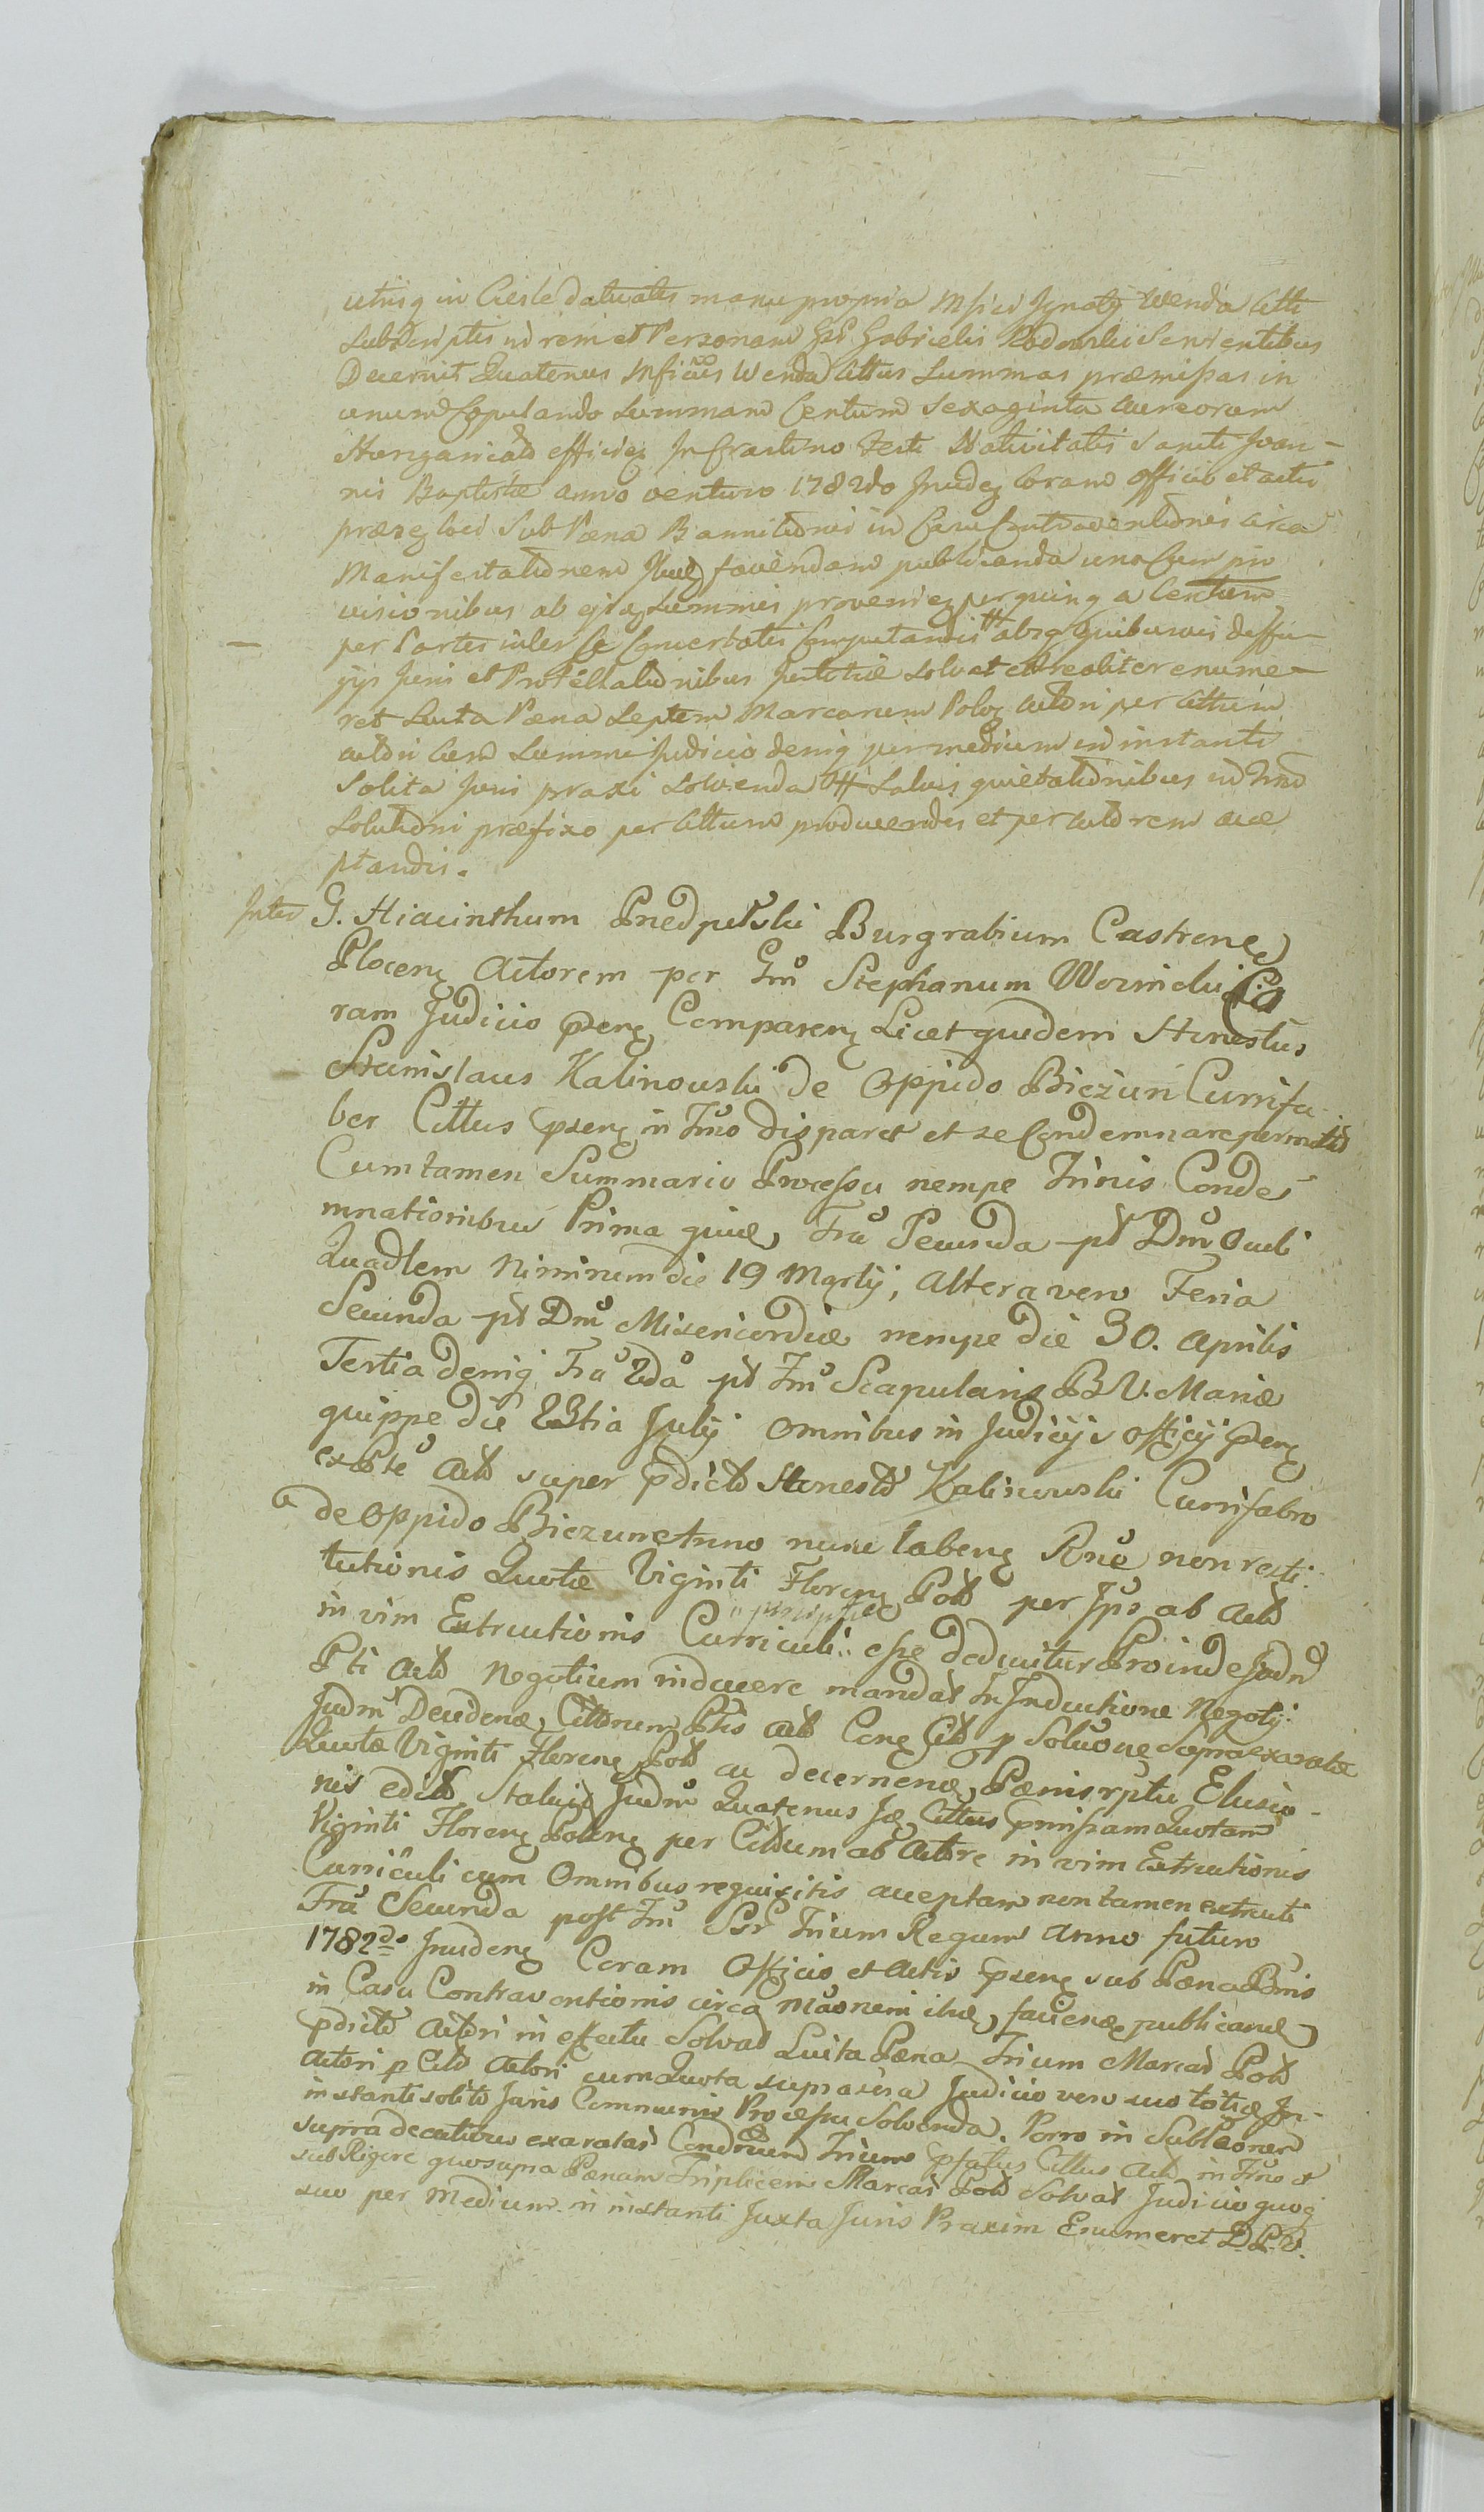 utrisq in Ciesle datuatis manu propria Mfici Ignatij Wenda Citti
Subscriptis ad rem et Personam Gsi Gabrielis Podoski Servientibus
Decernit Quatenus Mficus Wenda Cittus Summas præmissas in
unum Copulando Summam Centum Sexaginta Aureorum
Hungarical efficien In Crastino Festi Nativitatis Sancti Joan-
nis Baptistæ anno venturo 1782do Inciden Coram Officio et actis
præsen loci Sub Pæna Bannitionis in Casu Contraventionis circa
Manifestationem faciendam publicanda una Cum pro
visionibus ab ejsq Summis provenien per quinq a Centum
per Partes inter Se Concertatis Computandis absq quibusvis diffu-
gijs Juris et Protestationibus Justitiæ Solvat et realiter enume-
ret Luita Pæna Septem Marcarum Polon Actori per Cittum
Actori Cum Summa Judicio deniq per medium in instanti
Solita Juri praxi Solvenda Salvis quietationibus in Tmo
Solutioni præfixo per Cittum producendis et per Actorem acce
ptandis.
Inter G. Hiacinthum Przedpelski Burgrabium Castrene
Plocen Actorem per Gm Stephanum Woznicki Co
ram Judicio Præsen Comparen Licet quidem Honestus
Stanislaus Kalinowski de Oppido Biezun Currifa
ber Cittus præsen in Tmo disparet et se Condemnare permittit
Cum tamen Summario Processu nempe Trinis Conde
mnationibus Prima quidem Fra Secunda pt Dm Oculi
Quadlem Niminum die 19 Martij, altera vero Feria
Secunda pt Dm Misericordiæ nempe die 30. Aprilis
Tertia deniq Fra 2da pt Fm Scapularis B.V. Mariæ
quippe die 23tia Julij omnibus in Judicijs officij Præsen
ex Pte Act super pdicto Honesto Kalinowski Currifabro
de Oppido Biezun Anno nunc laben Rne non resti
tutionis Quotæ Viginti Floren Pol per Ips ab Act
in vim Extructionis Curriculi esse deducitur Proinde Judm
Pti Act Negotium inducere mandat In Inductione Negotij
Judm Deciden Cittorum Ptis Act Con Cit p Soluone Supraexaratæ
Quotæ Viginti Floren Pol ac decernen Pænis rptu Elusio-
nis edict Statuit Judm Quatenus Cittus præmissam Quotam
Viginti Floren Polon per Cittum ab Actore in vim Extructionis
Curriculi cum Omnibus requisitis acceptam non tamen extructi
Fra Secunda post Fm Ssr Trium Regum Anno futuro
1782do Inciden Coram Officio et Actis præsen sub Pæna Bnis
in Casu Contraventionis circa Maonem faciend publicand
pdicto Actori in effectu Solvat Luita Pæna Trium Marcar Pol
Actori p Cit Actori cum Quota suprascra Judicio vero suo totiq In-
instanti solito Juris Communis Processu Solvenda. Porro in
supra decenturus exaratas Condnum Trium pfatus Cittus Act in Tmo et
sub Rigore quo supra Pænam Triplicem Marcar Pol Solvat Judicio quoq
suo per Medium in instanti Juxta Juris Praxim Enumeret D.P.V.